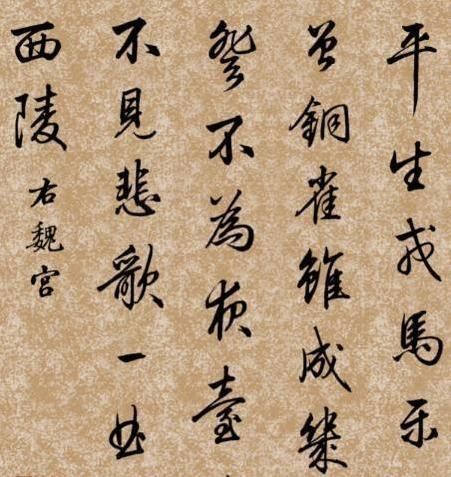 平生戎馬
曾銅雀雖成幾
登不為夜臺
不見悲歌一曲
西陵
右魏宮